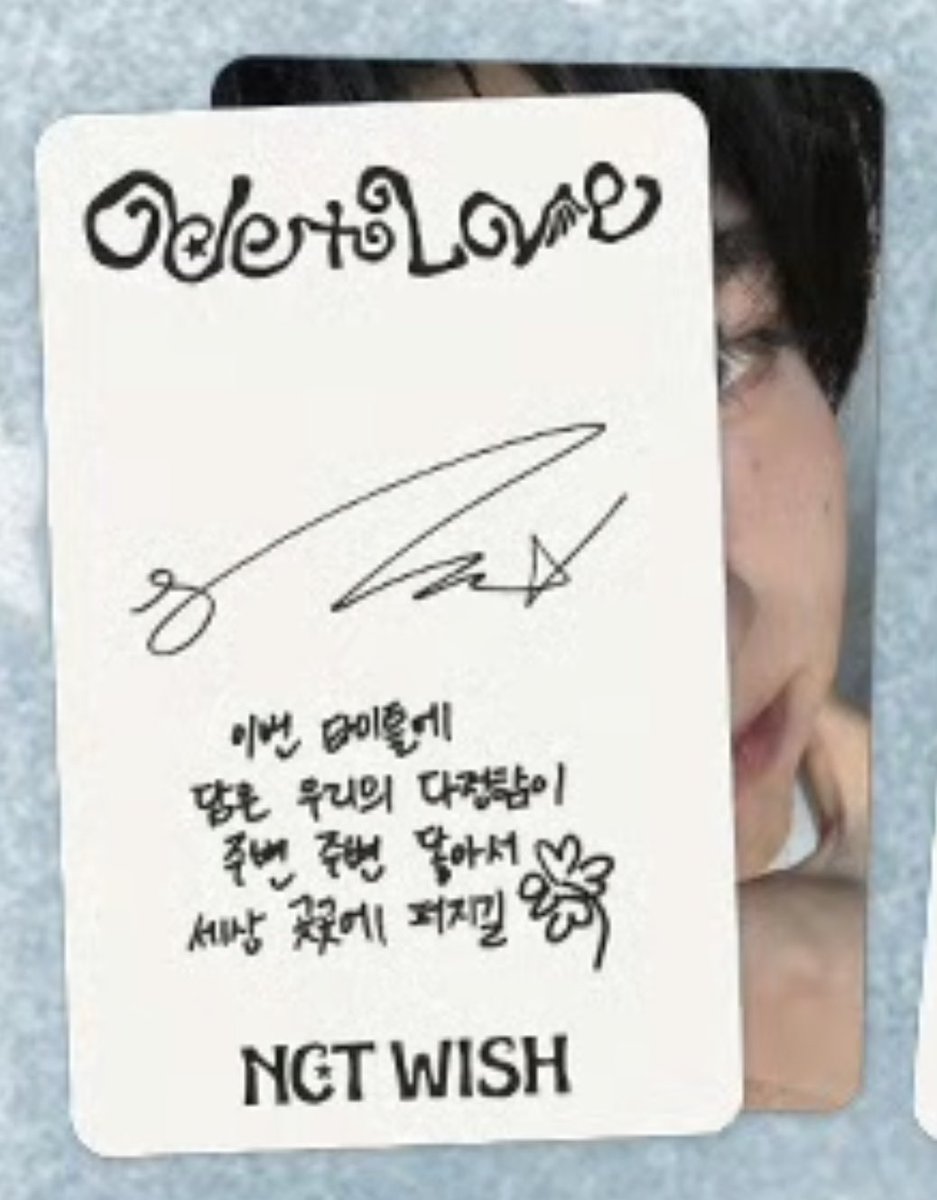 Ode to Love
이번 타이틀에
담은 우리의 다정함이
주변 주변 닿아서
세상 곳곳에 퍼지길
NCT WISH